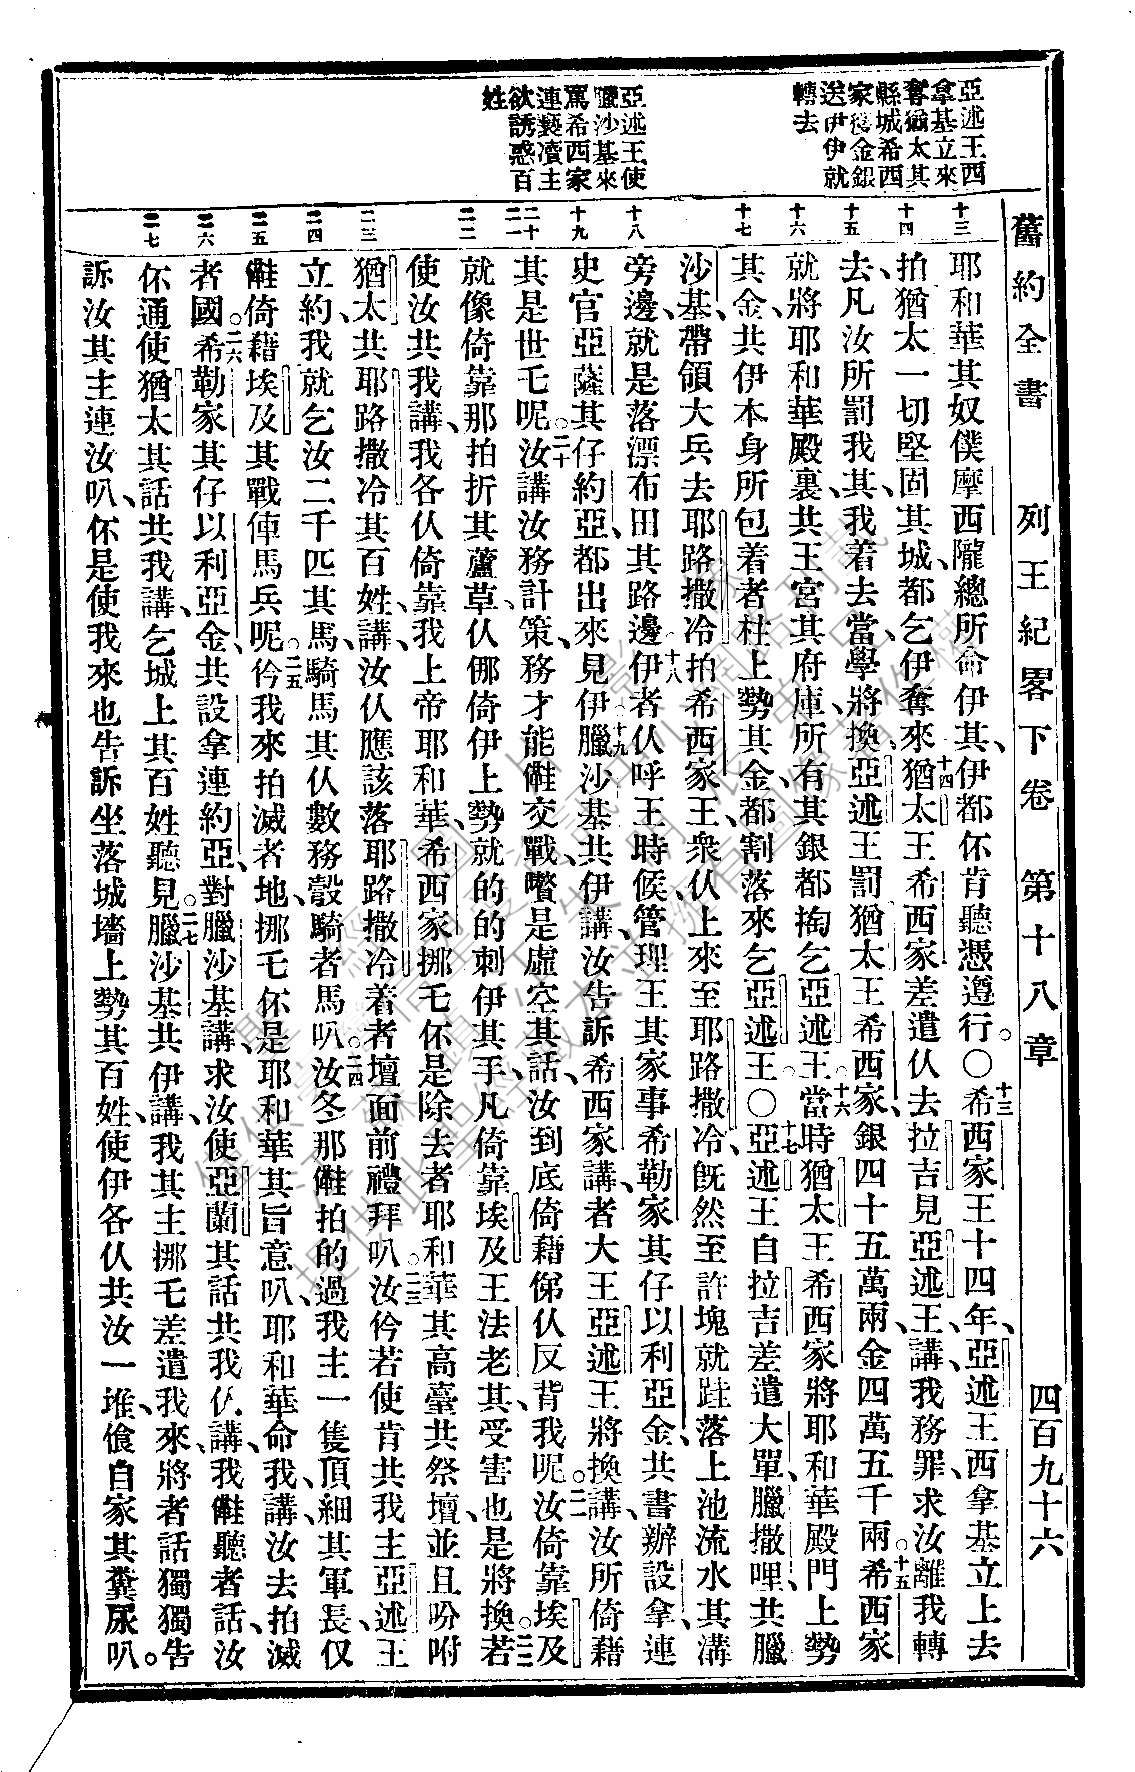 舊約全書　列王紀畧下卷　第十八章　四百九十六
亞述王西
拿基立來
奪猶太其
縣城希西
家穫金銀
送伊伊就
轉去
亞述王使
臘沙基來
罵希西家
連褻瀆主
欲誘惑百
姓
十三
十四
十五
十六
十七
十八
十九
二十
二一
二二
二三
二四
二五
二六
二七
耶和華其奴僕摩西隴總所命伊其、伊都伓肯聽憑遵行。○十三希西家王十四年、亞述王西拿基立上去
拍猶太一切堅固其城、都乞伊奪來、十四猶太王希西家差遣仈去拉吉見亞述王、講、我務罪、求汝離我轉
去、凡汝所罰我其、我着去當學將換、亞述王罰猶太王希西家、銀四十五萬兩、金四萬五千兩。十五希西家
就將耶和華殿裏、共王宮其府庫、所有其銀都掏乞亞述王。十六當時猶太王希西家將耶和華殿門上勢
其金、共伊本身所包着者柱上勢其金、都割落來乞亞述王○十七亞述王自拉吉差遣大單、臘撒哩、共臘
沙基、帶領大兵去耶路撒冷拍希西家王、衆仈上來至耶路撒冷、旣然至許塊、就跬落上池流水其溝
旁邊、就是落漂布田其路邊。十八伊者仈呼王時候、管理王其家事希勒家其仔以利亞金、共書辦設拿、連
史官亞薩其仔約亞、都出來見伊。十九臘沙基共伊講、汝告訴希西家講、者大王亞述王將換講、汝所倚藉
其是世乇呢。二十汝講汝務計策、務才能㑚交戰、嚽是虛空其話、汝到底倚藉俤仈反背我呢。二一汝倚靠埃及
就像倚靠那拍折其蘆草、仈倻倚伊上勢、就的的刺伊其手、凡倚靠埃及王法老其、受害也是將換。二二若
使汝共我講、我各仈倚靠我上帝耶和華、希西家挪乇伓是除去者耶和華其高臺共祭壇、並且吩咐
猶太共耶路撒冷其百姓、講、汝仈應該落耶路撒冷着者壇面前禮拜叭。二三汝仱若使肯共我主亞述王
立約、我就乞汝二千匹其馬、騎馬其仈數務彀騎者馬叭。二四汝冬那㑚拍的過我主一隻頂細其軍長、仅
㑚倚藉埃及其戰俥馬兵呢。二五仱我來拍滅者地、挪乇伓是耶和華其旨意叭、耶和華命我講、汝去拍滅
者國。二六希勒家其仔以利亞金、共設拿連約亞、對臘沙基講、求汝使亞蘭其話共我仈講、我㑚聽者話、汝
伓通使猶太其話共我講、乞城上其百姓聽見。二七臘沙基共伊講、我其主挪乇差遣我來、將者話獨獨告
訴汝其主連汝叭、伓是使我來也告訴坐落城墻上勢其百姓、使伊各仈共汝一堆飡自家其糞尿叭。